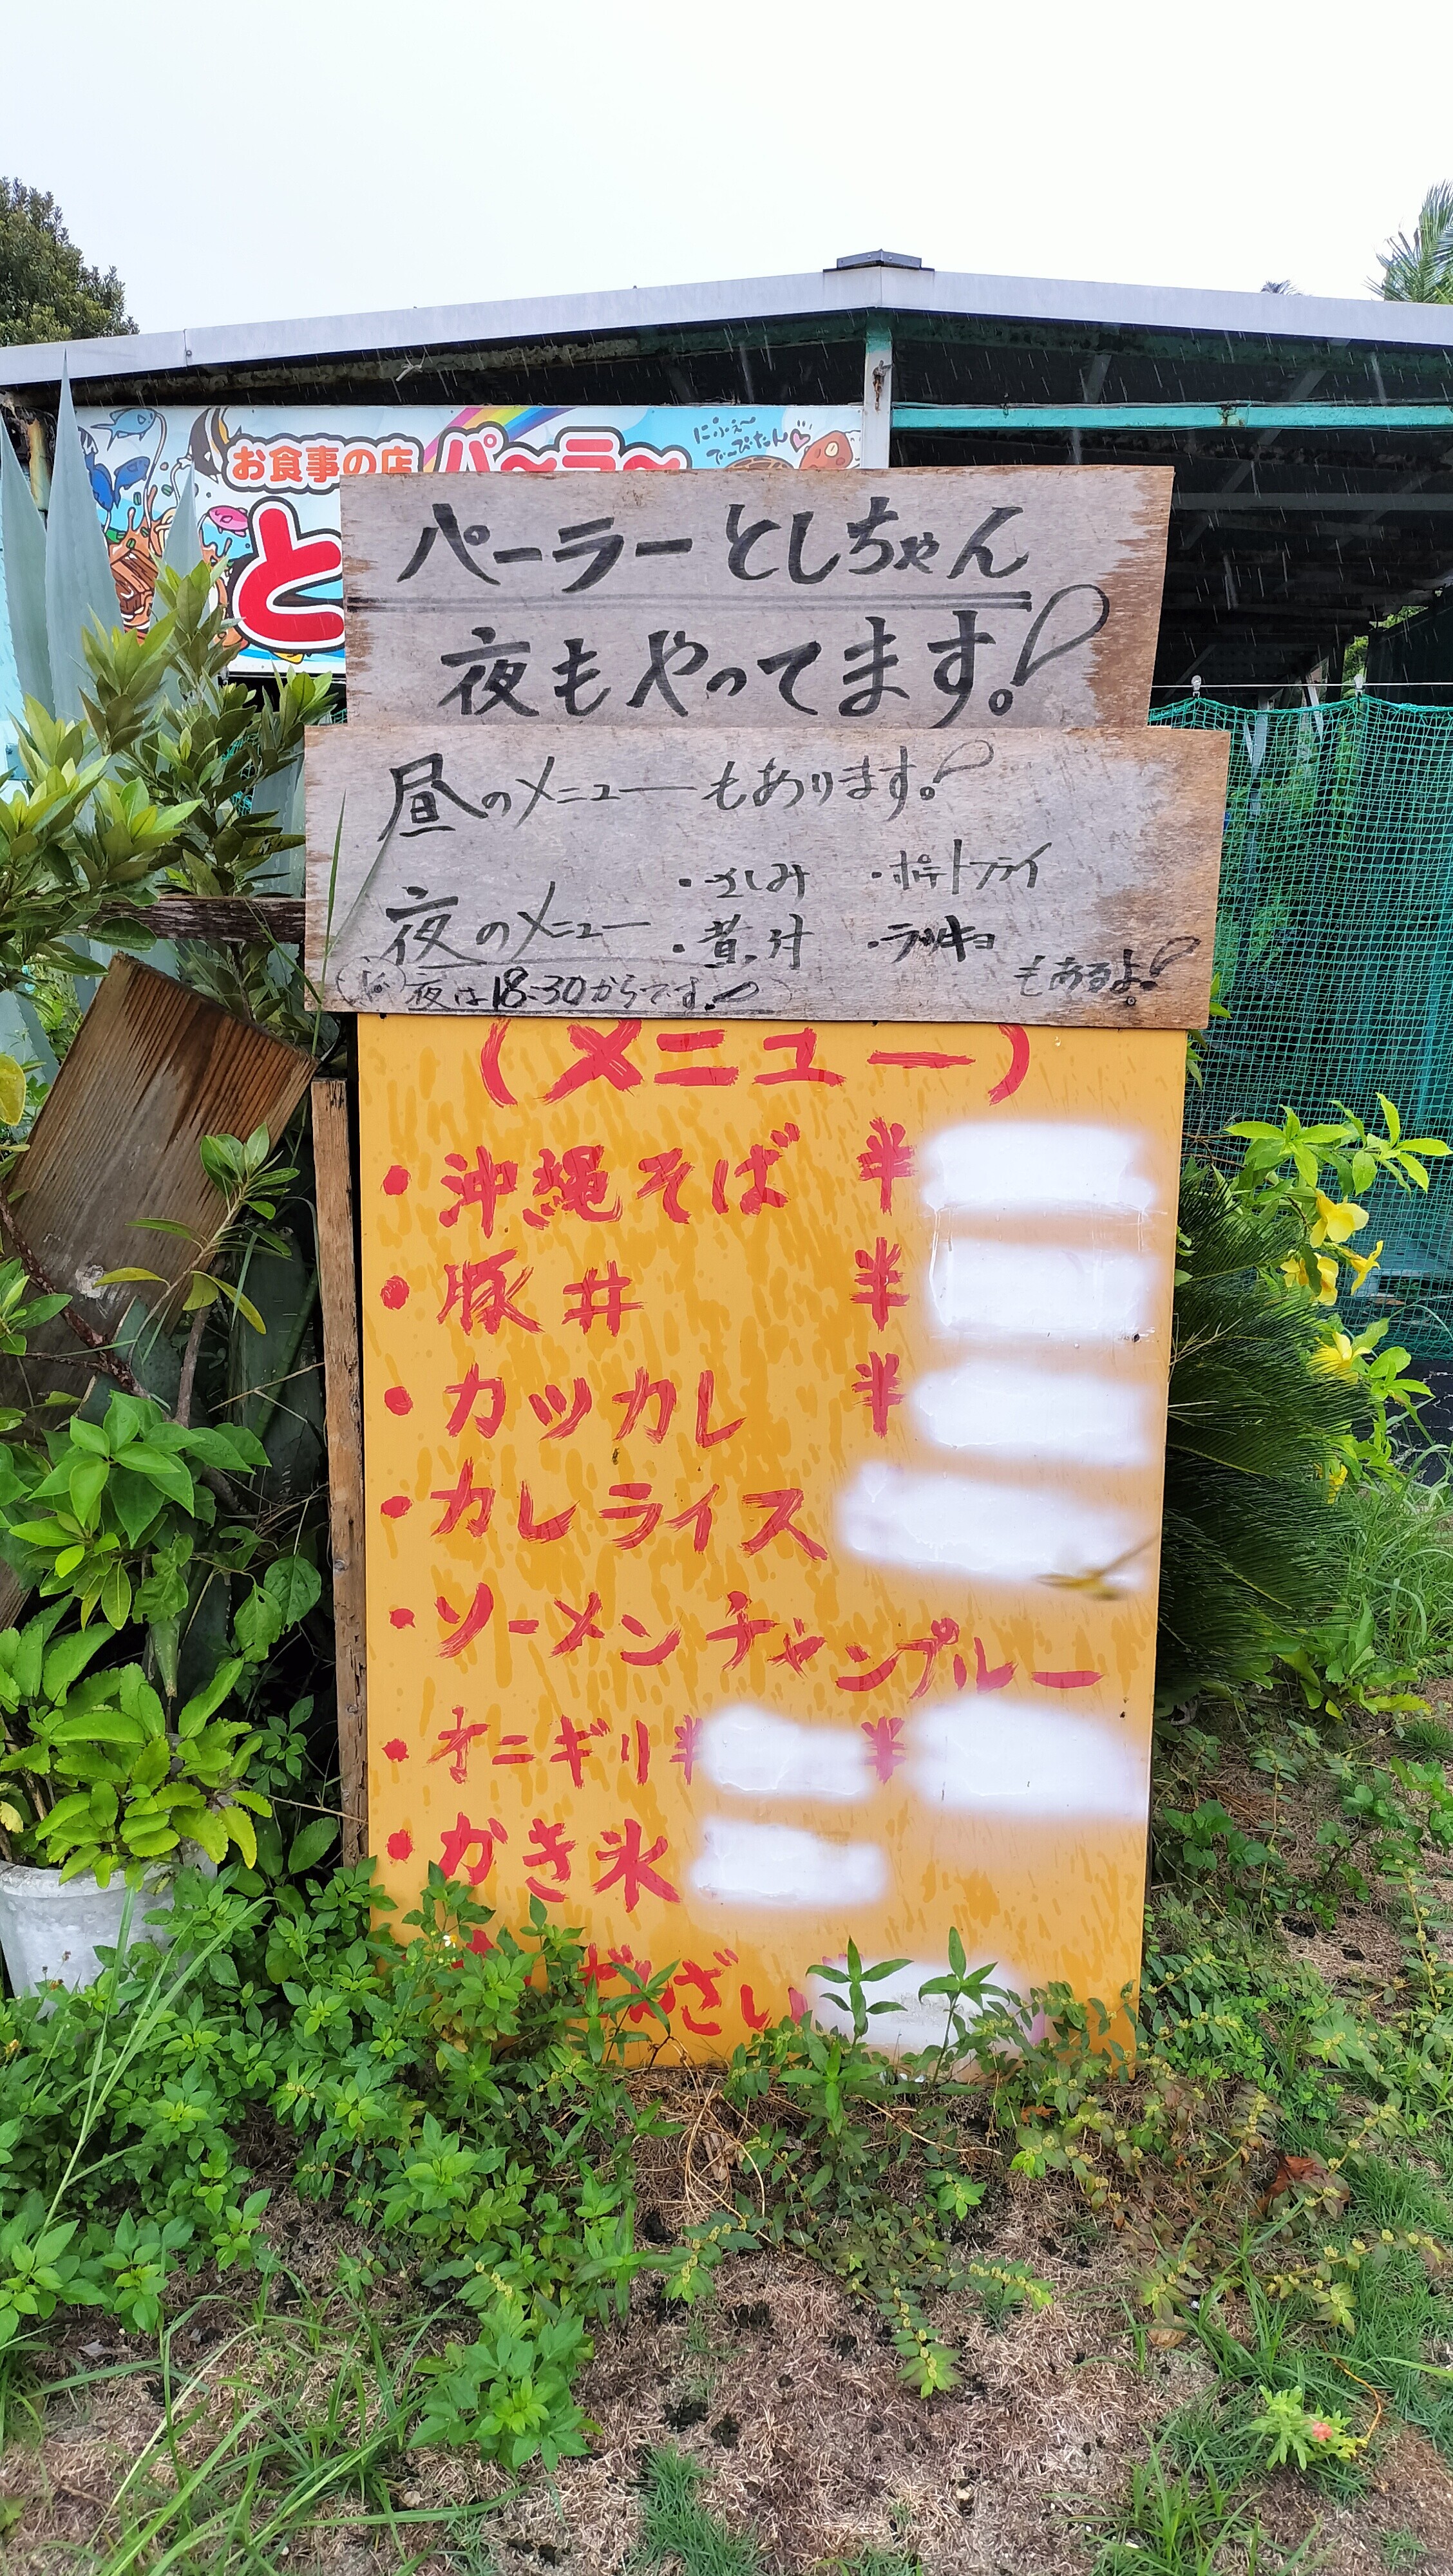 お食事の店 パーラー
にふぇ〜
でーびたん
と
パーラーとしちゃん
夜もやってます。
昼のメニューもあります。
・さしみ ・ポテトフライ
夜のメニュー ・煮汁 ・ラッキョ
夜は18:30からです。 もあるよ。
(メニュー)
・沖縄そば ¥
・豚丼 ¥
・カツカレ ¥
・カレライス
・ソーメンチャンプルー
・オニギリ¥ ¥
・かき氷
ざい